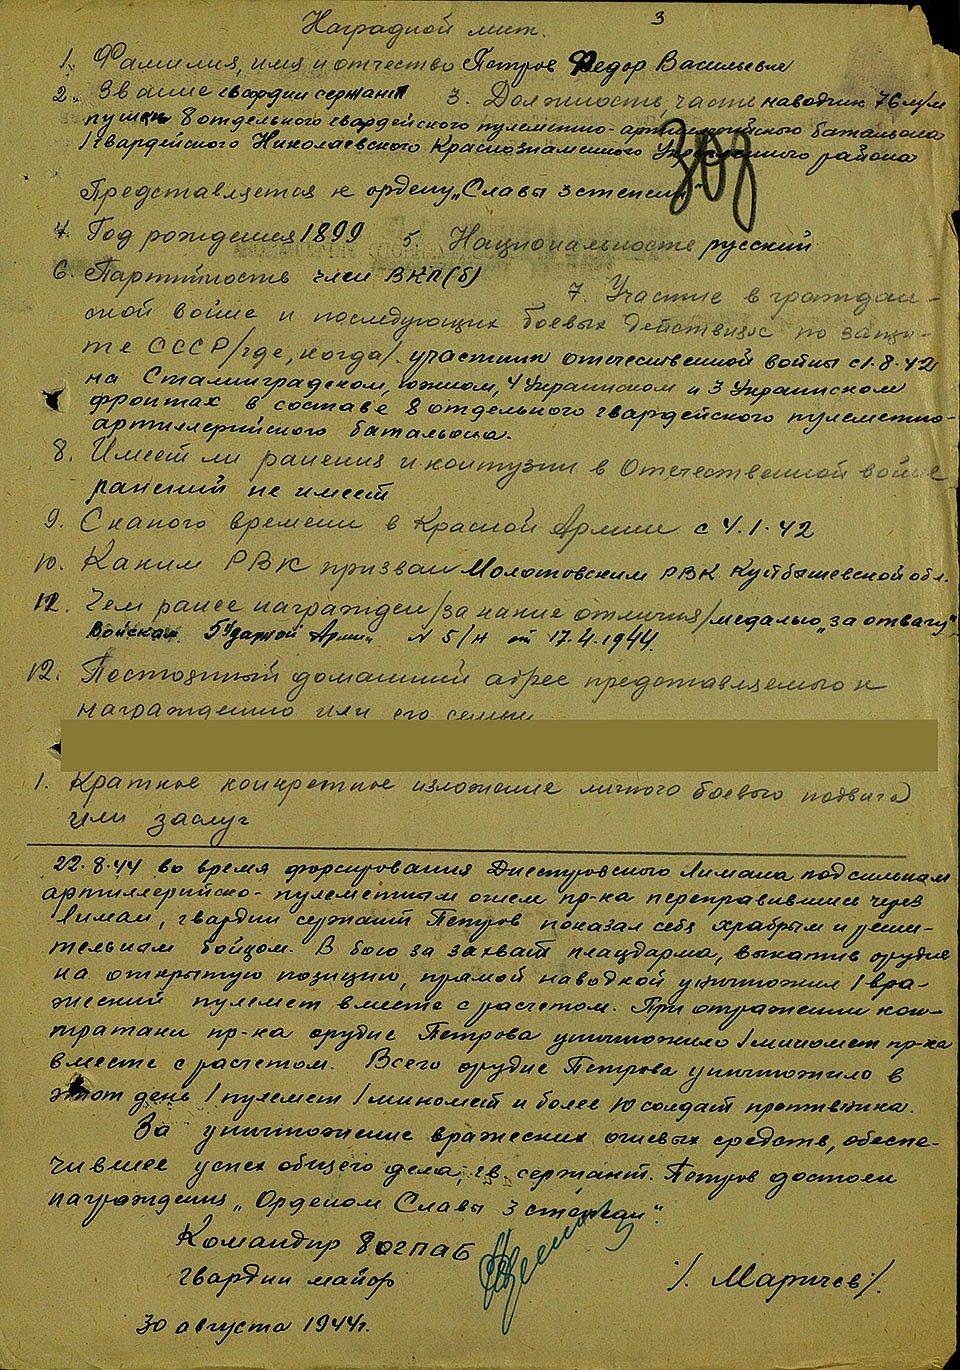 3
Наградной лист.
1. Фамилия, имя и отчество Петров Федор Васильевич
2. Звание гвардии сержант 3. Должность, часть наводчик 76 м/м
пушки 8 отдельного гвардейского пулеметно-артиллерийского батальона
1 гвардейского Николаевского Краснознаменного Укрепленного района
Представляется к ордену „Славы 3 степени"
4. Год рождения 1899 5. Национальность русский
6. Партийность член ВКП(б)
7. Участие в граждан-
ской войне и последующих боевых действиях по защи-
те СССР /где, когда/. участник отечественной войны с 1.8.42
на Сталинградском, южном, 4 Украинском и 3 Украинском
фронтах в составе 8 отдельного гвардейского пулеметно-
артиллерийского батальона.
8. Имеет ли ранения и контузии в Отечественной войне
ранений не имеет
9. С какого времени в Красной Армии с 4.1.42
10. Каким РВК призван Молотовским РВК Куйбышевской обл.
12. Чем ранее награжден /за какие отличия/ медалью „за отвагу"
Войскам 5 Ударной Армии N 5/н от 17.4.1944.
12. Постоянный домашний адрес представляемого к
награждению или его семьи
1. Краткое конкретное изложение личного боевого подвига
или заслуг
22.8.44 во время форсирования Днестровского Лимана под сильным
артиллерийско-пулеметным огнем пр-ка переправившись через
Лиман, гвардии сержант Петров показал себя храбрым и реши-
тельным бойцом. В бою за захват плацдарма, выкатив орудие
на открытую позицию, прямой наводкой уничтожил 1 вра-
жеский пулемет вместе с расчетом. При отражении кон-
тратаки пр-ка орудие Петрова уничтожило 1 миномет пр-ка
вместе с расчетом. Всего орудие Петрова уничтожило в
этот день 1 пулемет 1 миномет и более 10 солдат противника.
За уничтожение вражеских огневых средств, обеспе-
чившее успех общего дела, гв. сержант. Петров достоен
награждения „Орденом Славы 3 степени".
Командир 8 ОГПАБ
гвардии майор /. Маричев/.
30 августа 1944г.